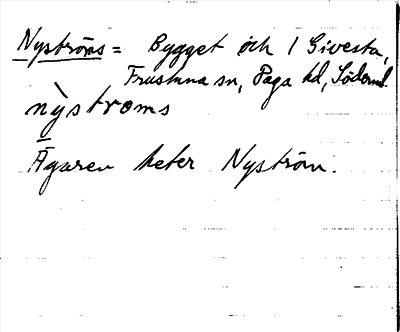 Nyströms = Bygget och 1 Givesta,
Frustuna sn, Daga hd, Söderml.
nỳstroms
Ägaren heter Nyström.